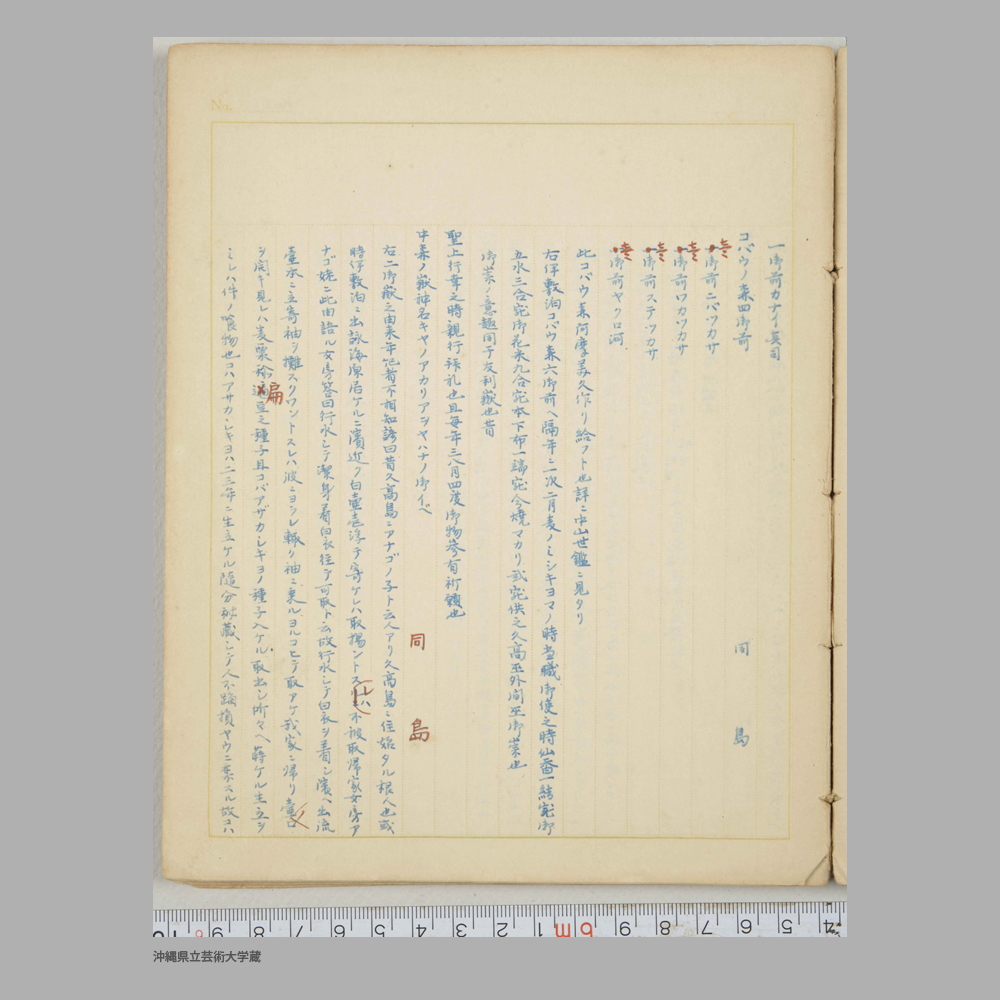 No.
一御前カナイ真司
コバウノ森四御前 同島
一御前ニバツカサ
一御前ワカツカサ
一御前ステツカサ
一御前ヤクロ河
此コバウ森阿摩美久作リ給フト也詳ニ中山世鑑ニ見タリ
右伃敷泊コバウ森六御前ヘ隔年ニ一次二月麦ノミシキヨマノ時当職御使之時仙香一結宛御
五水三合宛御花米九合宛本下布一端宛今焼マカリ弐宛供之久高巫外間巫御崇也
御崇ノ意趣同于友利嶽也昔
聖上行幸之時親行拝礼也且毎年三八月四度御物参有祈願也
中森ノ嶽神名キヤノアカリアシヤハナノ御イベ 同島
右二御嶽之由来年 者不相知諺曰昔久高島ニアナゴノ子ト云人アリ久高島ニ住始タル根人也或
時伃敷泊ニ出詠海原居ケルニ濱近ク白壷壱浮テ寄ケレハ取揚ントスレハ不被取帰家女房ア
ナゴ姥ニ此由語ル女房答曰行水シテ潔身着白衣往テ可取ト云故行水シテ白衣ヲ着シ濱ヘ出流
壷水ニ立寄袖ヲ攤スクワントスレハ波ニヨラレ輙ク袖ニ乗ルヨルコヒテ取アケ我家ニ帰リ壷口
ヲ開キ見レハ麦粟 扁豆之種子且コバアザカシキヨノ種子入ケル取出シ所々ヘ蒔ケル生立ヲ
ミレハ件ノ喰物也コハアサカシキヨハ二三年ニ生立ケル随分秘蔵シテ人不蹈損ヤウニ 故コハ
沖縄県立芸術大学蔵